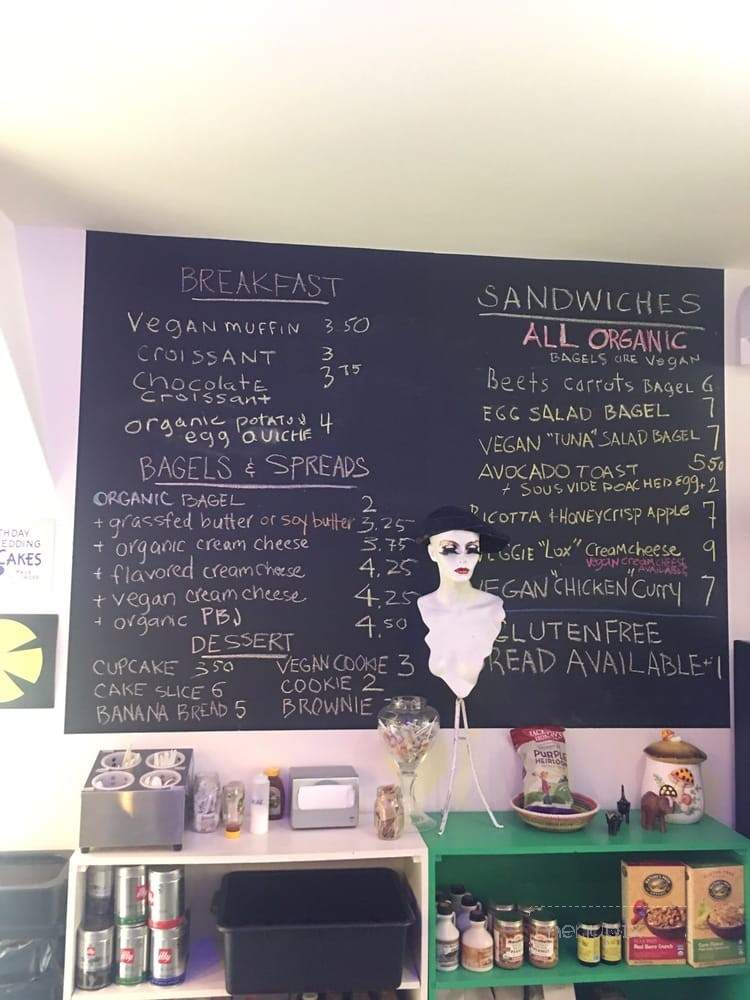 BREAKFAST
VEGAN MUFFIN 3.50
CROISSANT 3
Chocolate 3 75
Croissant
organic potatoes 4
egg QUICHE
BAGELS & SPREADS
ORGANIC BAGEL 2
+ grassfed butter or soy butter 3.25
+ organic cream cheese 3.75
+ flavored cream cheese 4.25
+ vegan cream cheese 4.25
+ organic PBJ 4.50
DESSERT
CUPCAKE 350 VEGAN COOKIE 3
CAKE SLICE 6 COOKIE 2
BANANA BREAD 5 BROWNIE
SANDWICHES
ALL ORGANIC
BAGELS ARE VEGAN
Beets carrots BAGEL 6
EGG SALAD BAGEL 7
VEGAN "TUNA" SALAD BAGEL 7
AVOCADO TOAST 550
+ SOUS VIDE POACHED egg+2
RICOTTA + HONEYCRISP APPLE 7
VEGGIE "Lox" Creamcheese 9
VEGAN CREAM CHEESE
AVAILABLE
VEGAN "CHICKEN" CURRY 7
GLUTENFREE
BREAD AVAILABLE+1
THDAY
EDDING
CAKES
PURPLE
HEIRLOOM
illy
illy
illy
illy